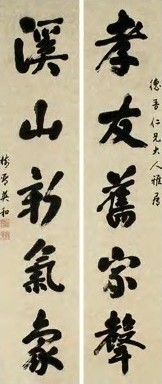 德菩仁兄大人雅属
孝友舊家聲
溪山新氣象
樹琴英和